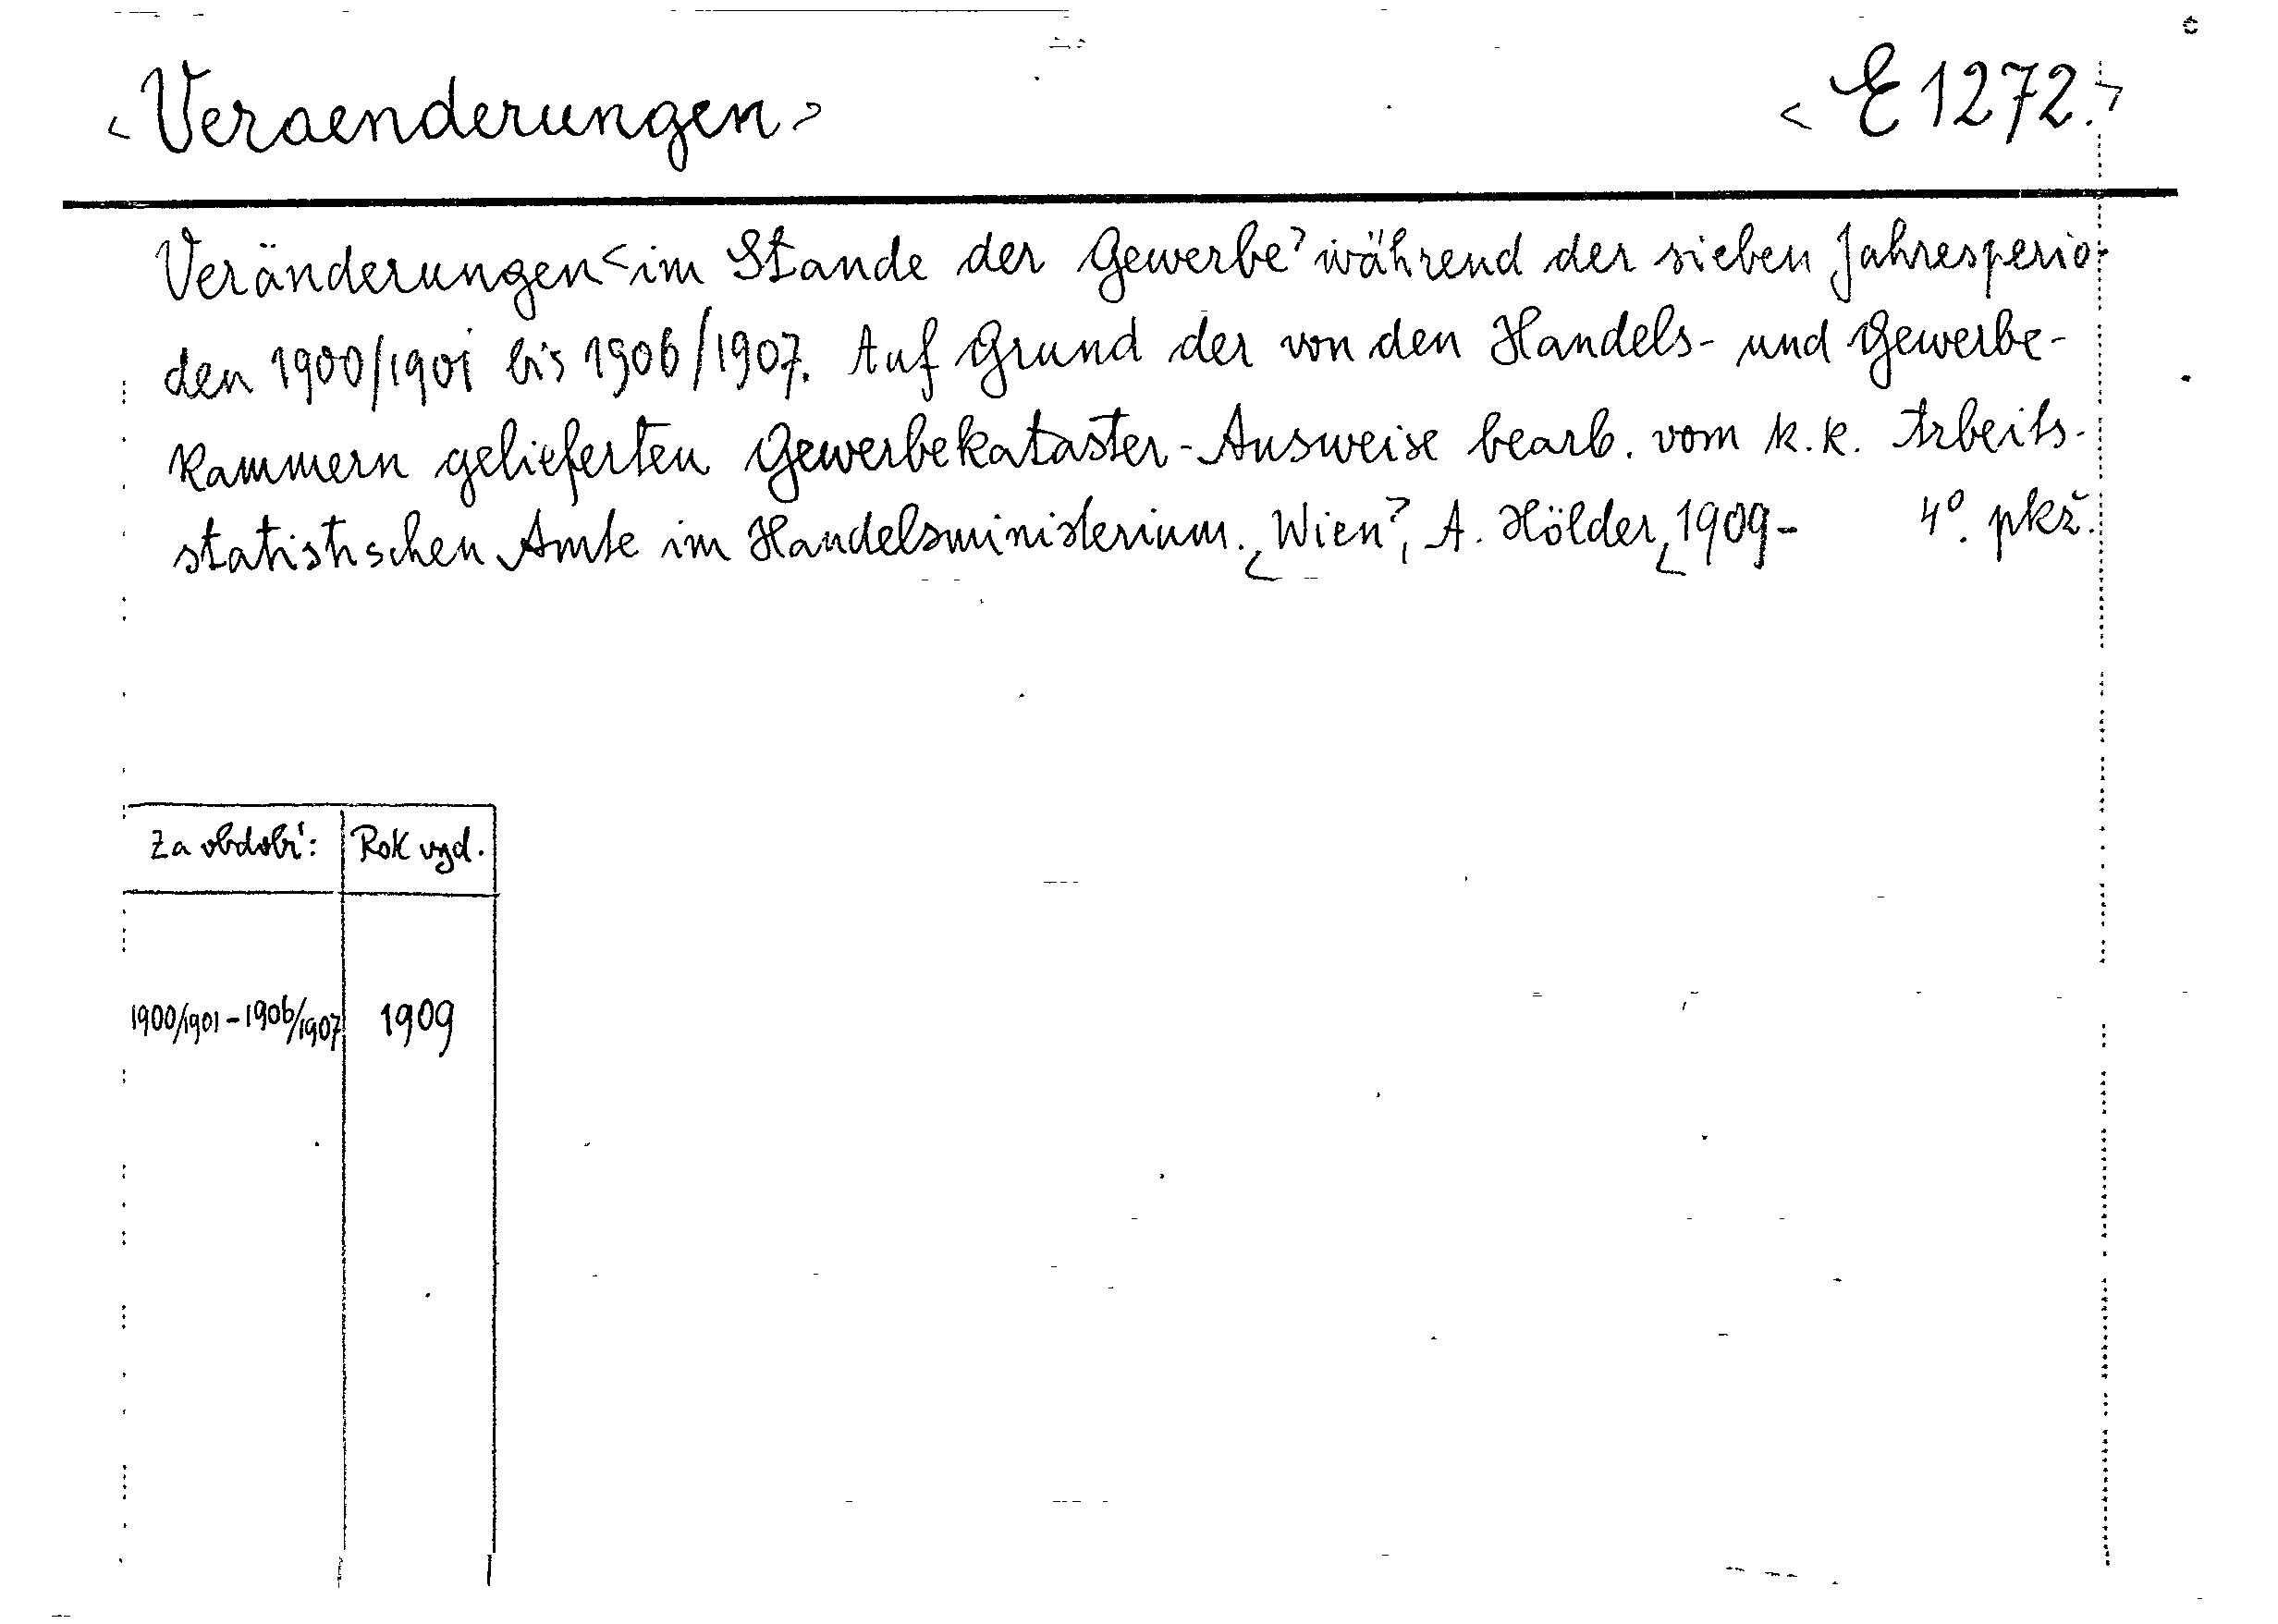 <Veraenderungen> <E 1272.>
Veränderungen <im Stande der Gewerbe> während der sieben Jahresperio-
den 1900/1901 bis 1906/1907. Auf Grund der von den Handels- und Gewerbe-
kammern gelieferten Gewerbekataster-Ausweise bearb. vom k.k. Arbeits-
statistischen Amte im Handelsministerium. <Wien>, A. Hölder, <1909- 4°. pkž.
Za období: Rok vyd.
1900/1901-1906/1907 1909